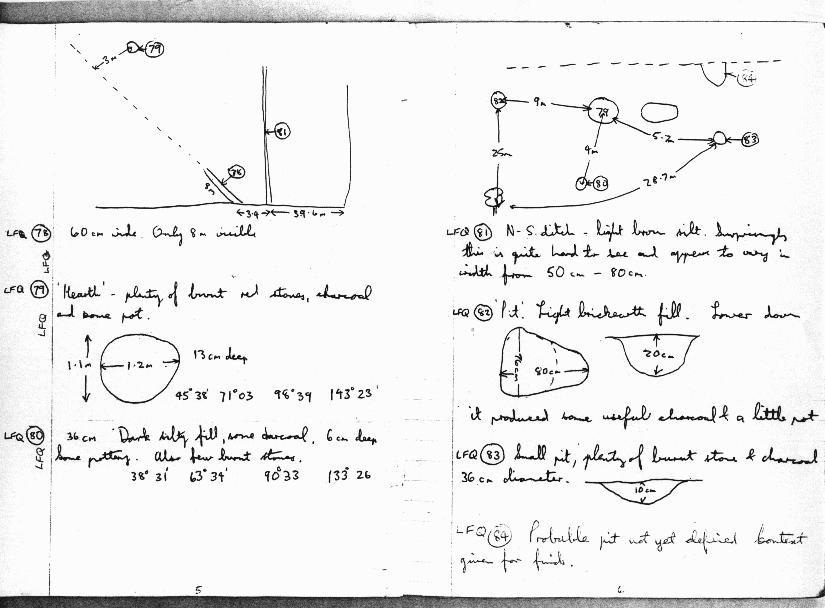 3m 79
81
78
8m
3.9 39.6m
LFQ 78 60cm wide. Only 8m visible
LFQ
LFQ 79 'Hearth' - plenty of burnt red stones, charcoal
and some pot.
LFQ
1.1m 1.2m 13cm deep
45°38' 71°03 98°39 143°23'
LFQ 80 36cm Dark silty fill, some charcoal, 6cm deep
Some pottery. Also few burnt stones.
LFQ
38°31' 63°34' 90°33 133°26
5
84
82 9m 79
5.2m 83
25m 4m
80 28.7m
LFQ 81 N-S. ditch - light brown silt. Surprisingly
this is quite hard to see and appears to vary in
width from 50cm - 80cm.
LFQ 82 'Pit'. Light brickearth fill. Lower down
76cm 80cm 20cm
it produced some useful charcoal & a little pot
LFQ 83 Small pit, plenty of burnt stone & charcoal
36cm diameter. 10cm
LFQ 84 Probable pit not yet defined Context
given for finds.
6.